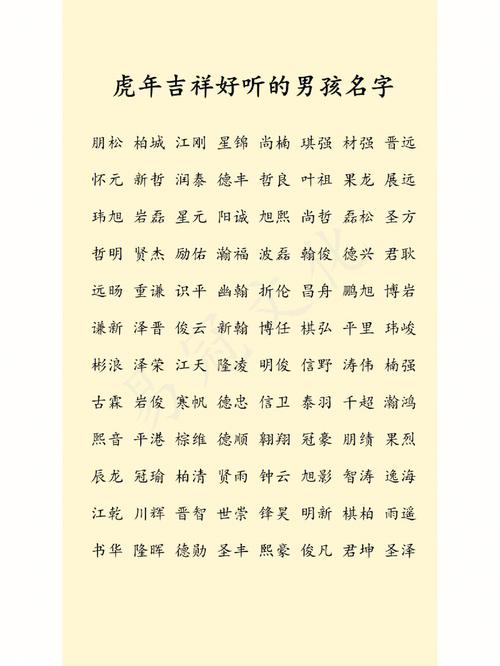 虎年吉祥好听的男孩名字
朋松 柏城 江刚 星锦 尚楠 琪强 材强 晋远
怀元 新哲 润泰 德丰 哲良 叶祖 果龙 展远
玮旭 岩磊 星元 阳诚 旭熙 尚哲 磊松 圣方
哲明 贤杰 励佑 瀚福 波磊 翰俊 德兴 君耿
远旸 重谦 识平 幽翰 折伦 昌舟 鹏旭 博岩
谦新 泽晋 俊云 新翰 博任 棋弘 平里 玮峻
彬浪 泽荣 江天 隆凌 明俊 信野 涛伟 楠强
古霖 岩俊 寒帆 德忠 信卫 泰羽 千超 瀚鸿
熙音 平港 棕维 德顺 翱翔 冠豪 朋绩 果烈
辰龙 冠瑜 柏清 贤雨 钟云 旭影 智涛 逸海
江乾 川辉 晋智 世崇 锋昊 明新 棋柏 雨遥
书华 隆晖 德勋 圣丰 熙豪 俊凡 君坤 圣泽
易冠文化